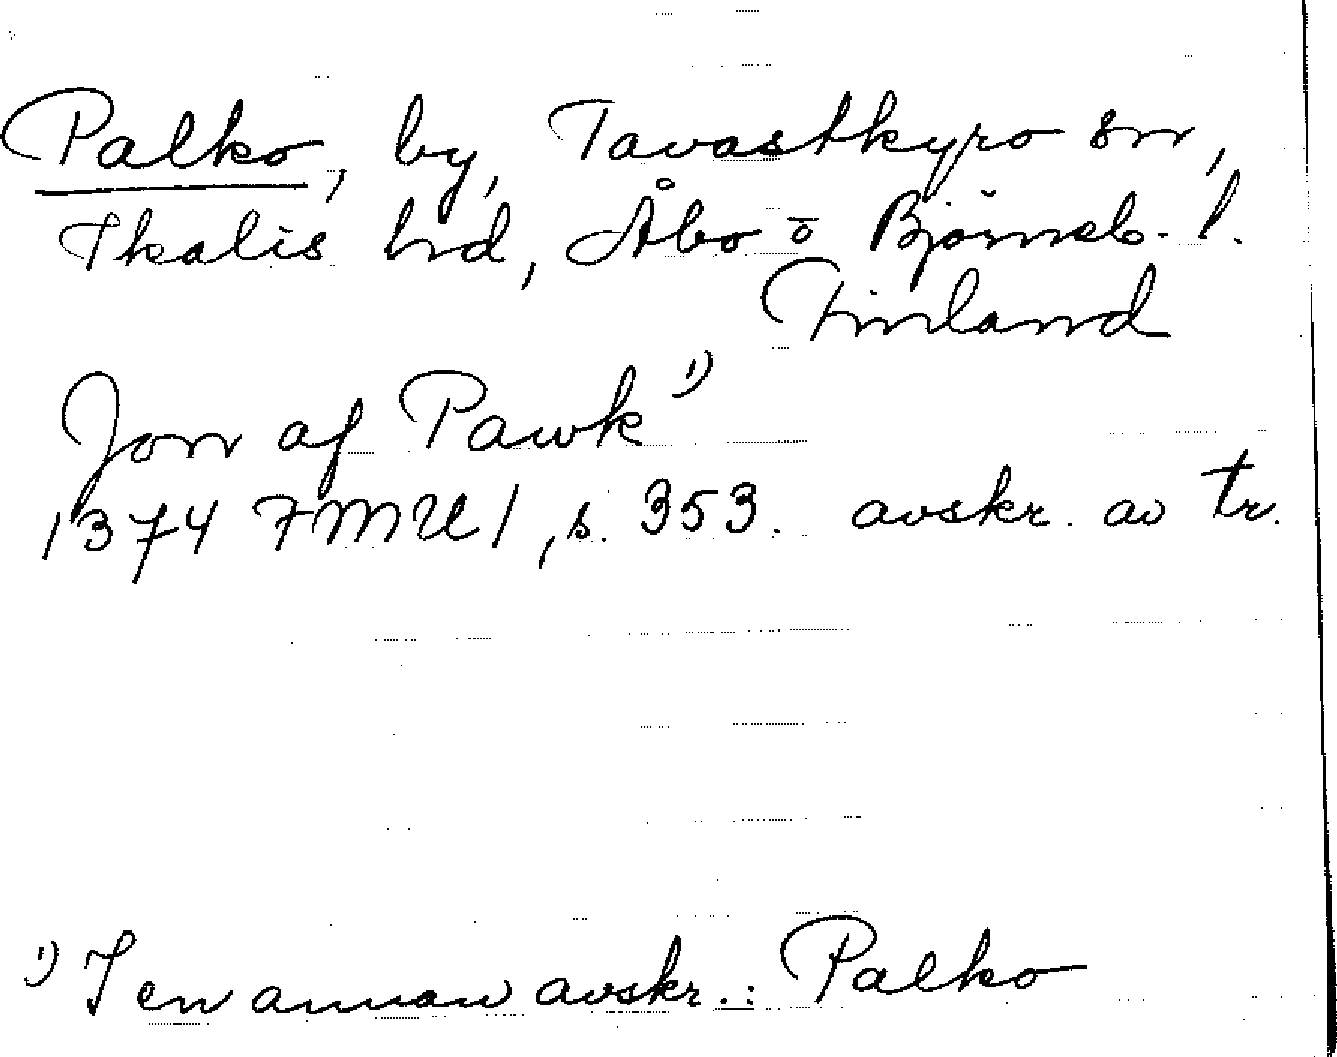 Palko, by, Tavastkyro sn,
Ikalis hd, Åbo o Björneb. l.
Finland
Jon af Pawk 1)
1374 FMU 1, s. 353. avskr. av tr.
1) I en annan avskr.: Palko